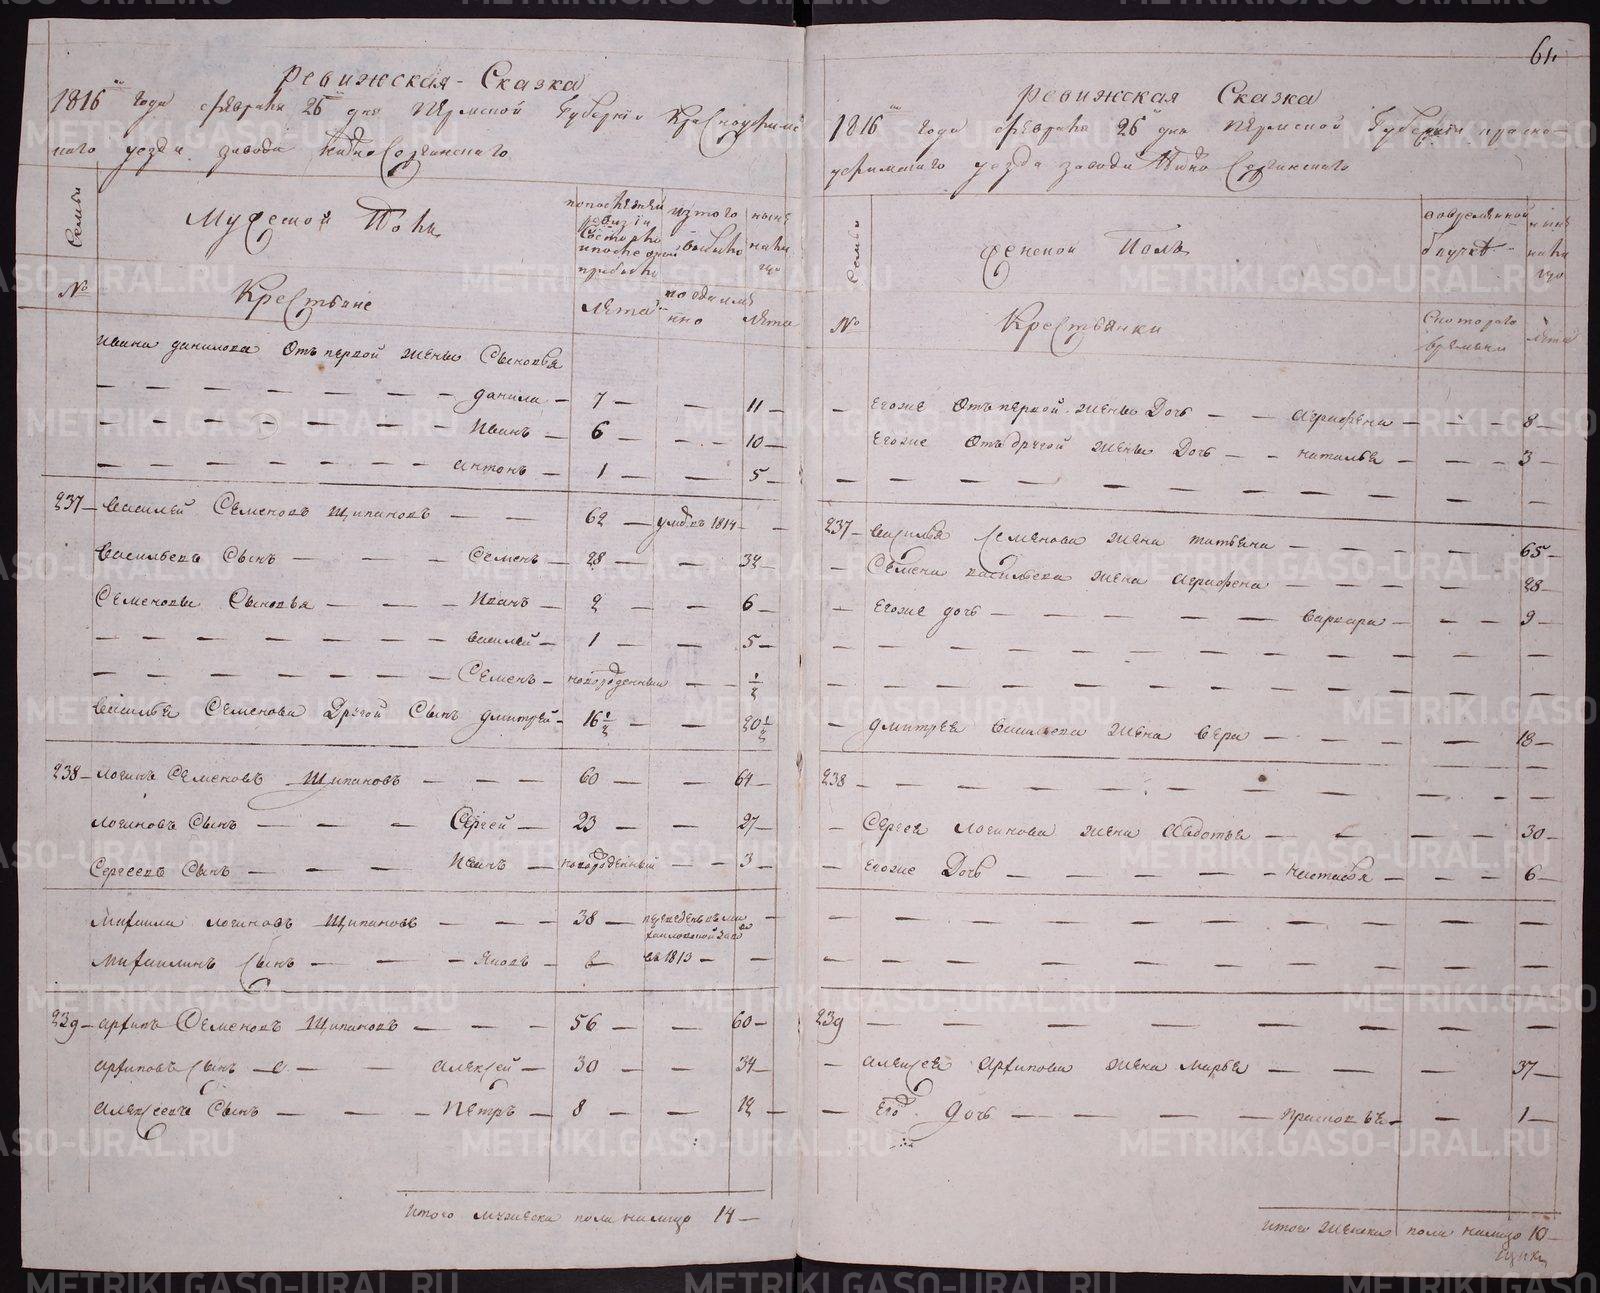 ревижская Сказка
1816 года февраля 26 дня Пермской Губернии Красноуфимс
каго уезда завода Нижно Сергинскаго
Семьи
Мужеской Полъ
по последней ревизіи состояло и после оной прибыло
из того выбыло
ныне на лицо
№
Крестьяне
лета
когда именно
лета
Ивана данилова Отъ первой жены Сыновья
— данила — 7 — — 11 —
— Иванъ — 6 — — 10 —
— антонъ — 1 — — 5 —
237 — василей Семеновъ Щипановъ — 62 — умръ въ 1814 —
Васильевъ Сынъ — Семенъ — 28 — — 32 —
Семеновы Сыновья — Иванъ — 2 — — 6 —
— василей — 1 — — 5 —
— Семенъ — новорожденный — 1/2
василья Семенова Другой Сынъ дмитрей — 16 1/2 — — 20 1/2
238 — логинъ Семеновъ Щипановъ — 60 — — 64 —
логиновъ Сынъ — Сергей — 23 — — 27 —
Сергеевъ Сынъ — Иванъ — новорожденный — — 3 —
Михаила логиновъ Щипановъ — 38 — переведенъ въ Михайловской завод —
Михаилинъ Сынъ — Яковъ — 6 — въ 1813 — —
239 — архипъ Семеновъ Щипановъ — 56 — — 60 —
архиповъ Сынъ — алексей — 30 — — 34 —
алексеевъ Сынъ — Петръ — 8 — — 12 —
Итого мужеска пола налицо 14 —
61.
ревижская Сказка
1816 года февраля 26 дня Пермской Губернии красно
уфимскаго уезда завода Нижно Сергинскаго
Семьи
женской Полъ
во временной отлучке
ныне на лицо
№
Крестьянки
С котораго времени
лета
— Егоже Отъ первой жены Дочь — аграфена — 8 —
Егоже Отъ другой жены Дочь — наталья — 3 —
237 — василья Семенова жена татьяна — 65 —
— Семена васильева жена аграфена — 28 —
— Егоже дочь — варвара — 9 —
— дмитрея васильева жена вера — 18 —
238 —
— Сергея логинова жена авдотья — 30 —
— Егоже Дочь — настасья — 6 —
239 —
— алексея архипова жена марья — 37 —
— Его Дочь — прасковья — 1 —
Итого женска пола налицо 10 —